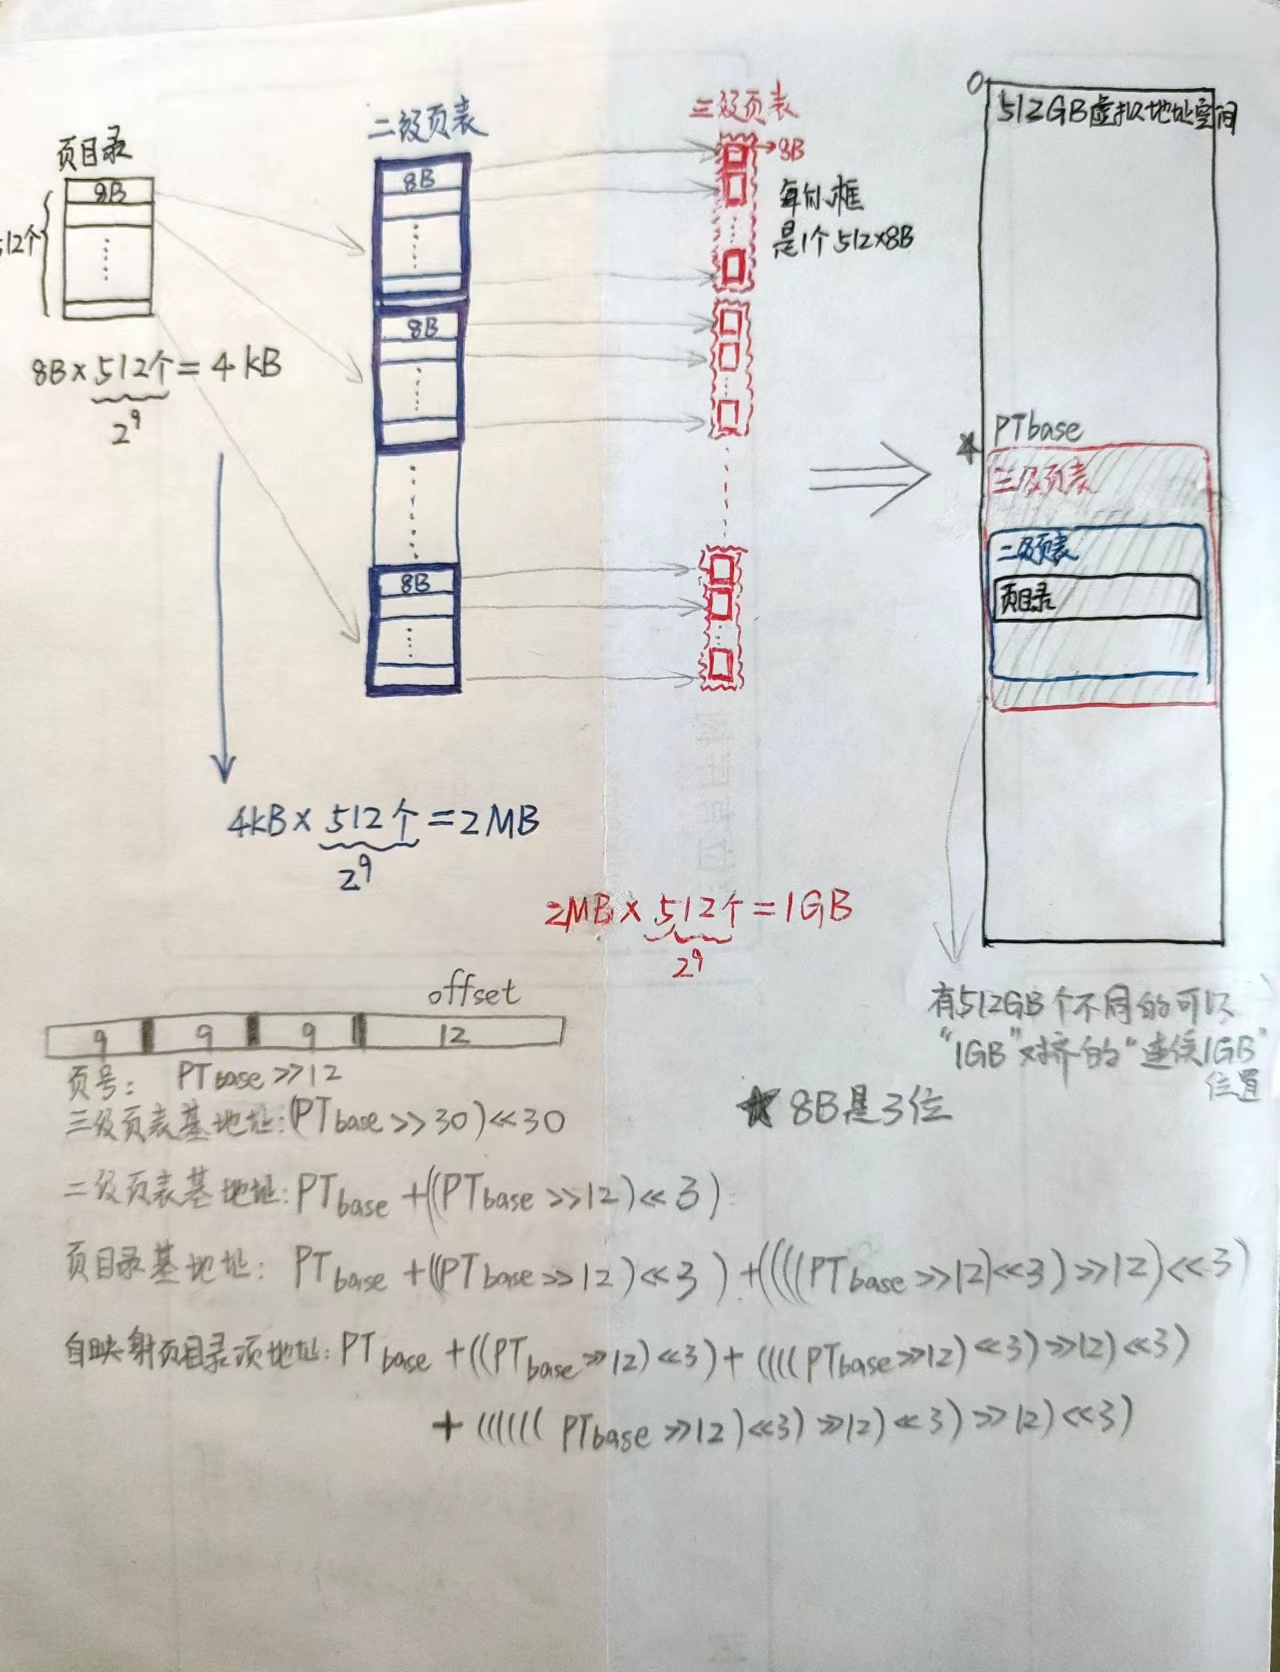 页目录
8B
512个
8B × 512个 = 4 kB
2^9
二级页表
8B
8B
8B
4kB × 512个 = 2MB
2^9
三级页表
→8B
每个小框
是1个 512×8B
2MB × 512个 = 1GB
2^9
0
512GB虚拟地址空间
PTbase
三级页表
二级页表
页目录
有512GB个不同的可以
"1GB"对齐的"连续1GB"
位置
★ 8B是3位
offset
9 9 9 12
页号: PTbase>>12
三级页表基地址:(PTbase>>30)<<30
二级页表基地址:PTbase+((PTbase>>12)<<3)
页目录基地址: PTbase+((PTbase>>12)<<3)+((((PTbase>>12)<<3)>>12)<<3)
自映射页目录项地址:PTbase+((PTbase>>12)<<3)+((((PTbase>>12)<<3)>>12)<<3)
+((((((PTbase>>12)<<3)>>12)<<3)>>12)<<3)